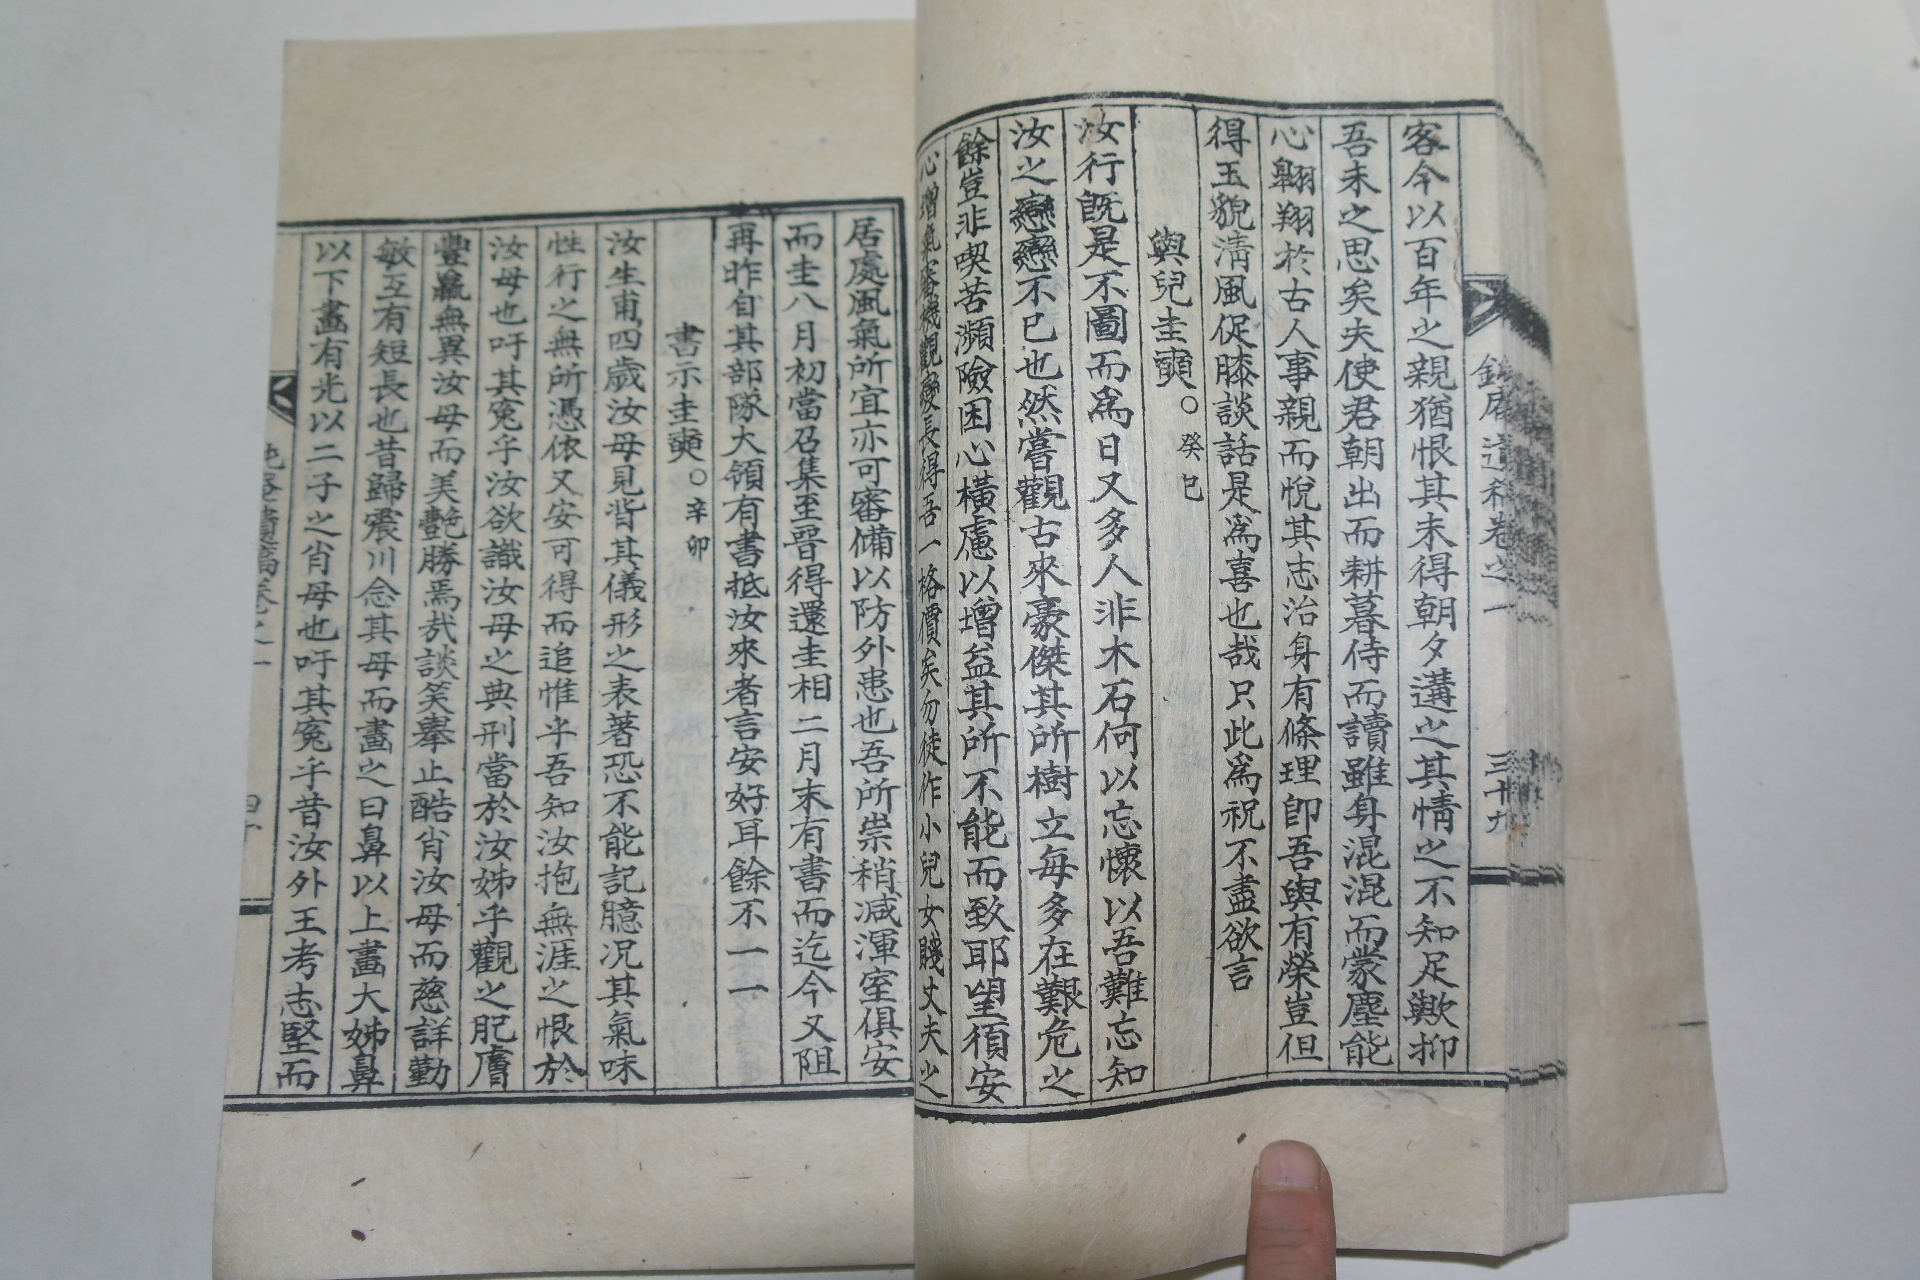 客今以百年之親猶恨其未得朝夕遘之其情之不知足歟抑
吾未之思矣夫使君朝出而耕暮侍而讀雖身混混而蒙塵能
心翺翔於古人事親而悅其志治身有條理卽吾與有榮豈但
得玉貌淸風促膝談話是爲喜也哉只此爲祝不盡欲言
與兒圭奭○癸巳
汝行旣是不圖而爲日又多人非木石何以忘懷以吾難忘知
汝之戀戀不已也然嘗觀古來豪傑其所樹立每多在艱危之
餘豈非喫苦瀕險困心橫慮以增益其所不能而致耶望須安
心增氣審機觀變長得吾一格價矣勿徒作小兒女賤丈夫之
遺稿卷之一
三十九
居處風氣所宜亦可審備以防外患也吾所祟稍減渾室俱安
而圭八月初當召集至晉得還圭相二月末有書而迄今又阻
再昨自其部隊大領有書抵汝來者言安好耳餘不一一
書示圭奭○辛卯
汝生甫四歲汝母見背其儀形之表著恐不能記臆况其氣味
性行之無所憑依又安可得而追惟乎吾知汝抱無涯之恨於
汝母也吁其寃乎汝欲識汝母之典刑當於汝姊乎觀之肥膚
豐羸無異汝母而美艷勝焉哉談笑擧止酷肖汝母而慈詳勤
敏互有短長也昔歸震川念其母而畵之曰鼻以上畵大姊鼻
以下畵有光以二子之肖母也吁其寃乎昔汝外王考志堅而
遺稿卷之一
四十